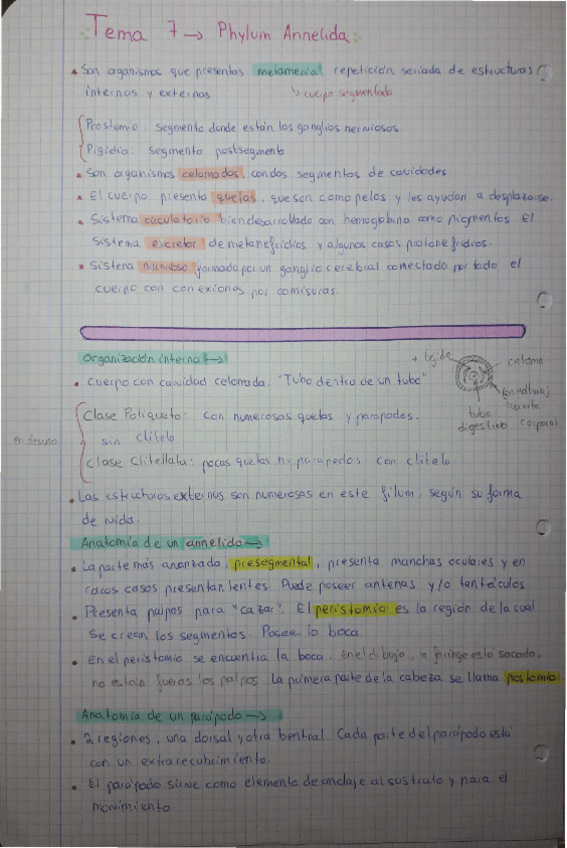 Tema 7 → Phylum Annelida.
• Son organismos que presentas metameria: repetición seriada de estructuras
internas y externas ↳ cuerpo segmentado
Prostomio: segmento donde están los ganglios nerviosos.
Pigidio: segmento postsegmento
• Son organismos celomados, con dos segmentos de cavidades.
• El cuerpo presenta quetas, que son como pelos y les ayudan a desplazarse.
• Sistema circulatorio bien desarrollado con hemoglobina como pigmentos. El
sistema excretor de metanefridios y algunos casos protonefridios.
• Sistema nervioso formado por un ganglio cerebral conectado por todo el
cuerpo con conexiones por comisuras.
Organización interna →
• Cuerpo con cavidad celomada. "Tubo dentro de un tubo"
+ tejido
celoma
tubo
digestivo
corporal
en desuso
Clase Poliqueto: con numerosas quetas y parapodos.
sin clitelo
Clase Clitellata: pocas quetas ni parapodos con clitelo
• Las estructuras externas son numerosas en este filum, según su forma
de vida.
Anatomía de un annelido →
• La parte más avanzada, presegmental, presenta manchas oculares y en
raros casos presentan lentes. Puede poseer antenas y/o tentáculos.
• Presenta palpos para "cazar". El peristomio es la región de la cual
se crean los segmentos. Posee la boca.
• En el peristomio se encuentra la boca. En el dibujo, la faringe está sacada,
no están fueras los palpos. La primera parte de la cabeza se llama postomio.
Anatomía de un parápodo →
• 2 regiones, una dorsal y otra bentral. Cada parte del parápodo está
con un extra recubrimiento.
• El parápodo sirve como elemento de anclaje al sustrato y para el
movimiento.